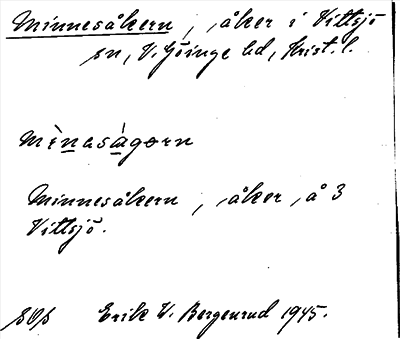 Minnesåkern, åker i Vittsjö
sn, V. Göinge hd, Krist. l.
mìnasàgorn
Minnesåkern, åker, å 3
Vittsjö.
Erik W. Bergenrud 1945.